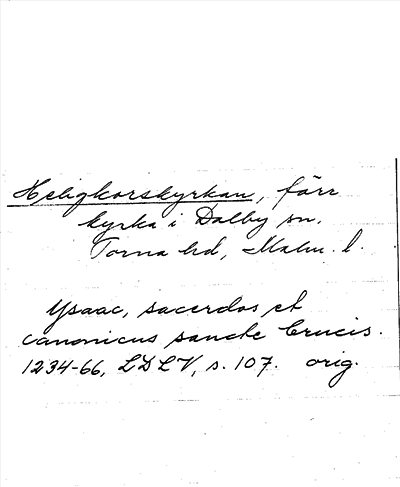 Heligkorskyrkan, förr
kyrka i Dalby sn.
Torna hd, Malm. l.
Ysaac, sacerdos et
canonicus sancte Crucis.
1234-66, LDLV, s. 107. orig.